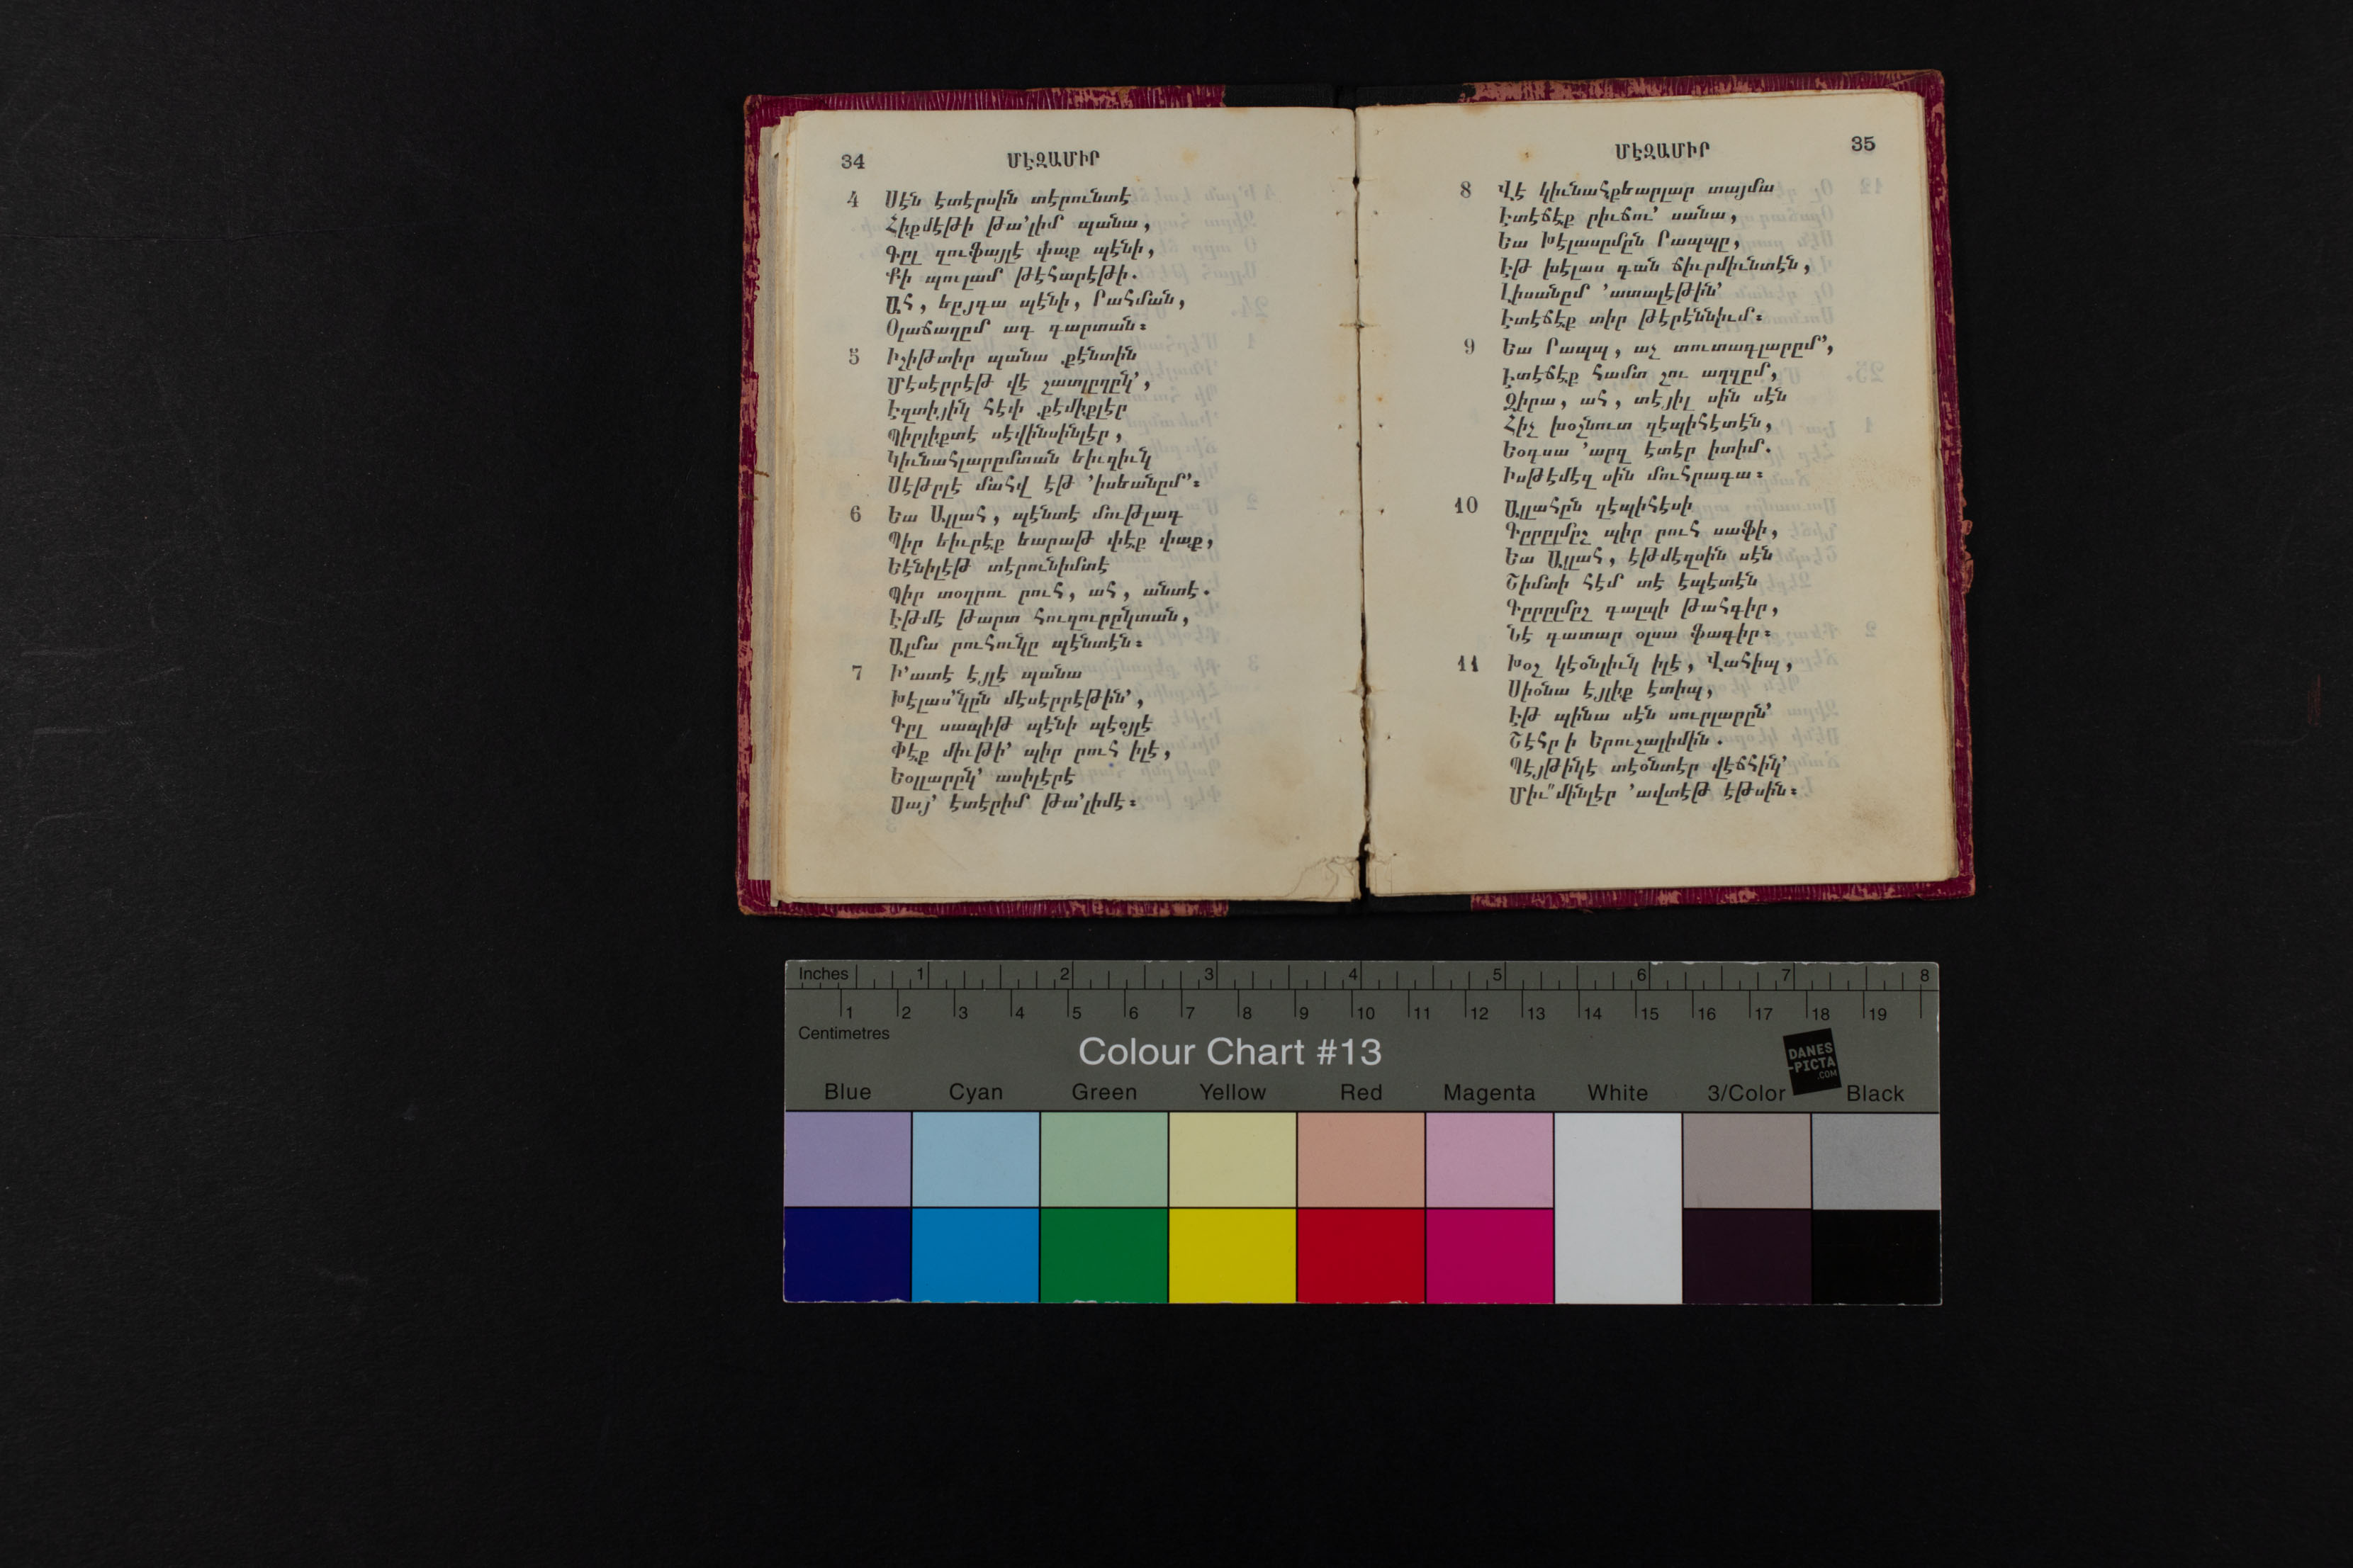 34
ՄԷԶԱՄԻՐ
4 Սէն էտէրսին տէրունտէ
Հիքմէթի թա՚լիմ պանա,
Գըլ զուֆայլէ փաք պէնի,
Քի պուլամ թէհարէթի.
Ահ, եըյգա պէնի, Րահման,
Օլաճաղըմ ագ գարտան։
5 Իշիթտիր պանա քէնտին
Մէսէրրէթ վէ շատլըղըն՚,
Էզտիյին հէփ քէմիքլէր
Պիրլիքտէ սէվինսինլէր,
Կիւնահլարըմտան եիւզիւն
Սէթրլէ մահվ էթ ՚իսեանըմ՚։
6 Եա Ալլահ, պէնտէ մութլագ
Պիր եիւրէք եարաթ փէք փաք,
Եէնիլէթ տէրունիմտէ
Պիր տօղրու րուհ, ահ, անտէ.
Էթմէ թարտ հուզուրընտան,
Ալմա րուհունը պէնտէն։
7 Ի՚ատէ էյլէ պանա
Խէլաս՚նըն մէսէրրէթին՚,
Գըլ սապիթ պէնի պէօյլէ
Փէք միւթի՚ պիր րուհ իլէ,
Եօլլարըն՚ ասիլէրէ
Սայ՚ էտէրիմ թա՚լիմէ։
ՄԷԶԱՄԻՐ
35
8 Վէ կիւնահքեարլար տայմա
Էտէճէք րիւճու՚ սանա,
Եա Խէլասըմըն Րապպը,
Էթ խէլաս գան ճիւրմիւնտէն,
Լիսանըմ ՚ատալէթին՚
Էտէճէք տիր թէրէննիւմ։
9 Եա Րապպ, աչ տուտագլարըմ՚,
Էտէճէք համտ շու աղզըմ,
Զիրա, ահ, տէյիլ սին սէն
Հիչ խօշնուտ զէպիհէտէն,
Եօգսա ՚արզ էտէր իտիմ.
Իսթէմէզ սին մուհրագա։
10 Ալլահըն զէպիհէսի
Գըրըլմըշ պիր րուհ սաֆի,
Եա Ալլահ, էթմէզսին սէն
Շիմտի հէմ տէ էպէտէն
Գըրըլմըշ գալպի թահգիր,
Նէ գատար օլսա ֆագիր։
11 Խօշ կէօնլիւն իլէ, Վահիպ,
Սիօնա էյլիք էտիպ,
Էթ պինա սէն սուրլարըն՚
Շէհր ի Երուշալիմին.
Պէյթինէ տէօնտէր վէճհին՚
Միւ՚՚մինլէր ՚ավտէթ էթսին։
Inches 1 2 3 4 5 6 7 8
1 2 3 4 5 6 7 8 9 10 11 12 13 14 15 16 17 18 19
Centimetres
Colour Chart #13
DANES
-PICTA
.COM
Blue Cyan Green Yellow Red Magenta White 3/Color Black